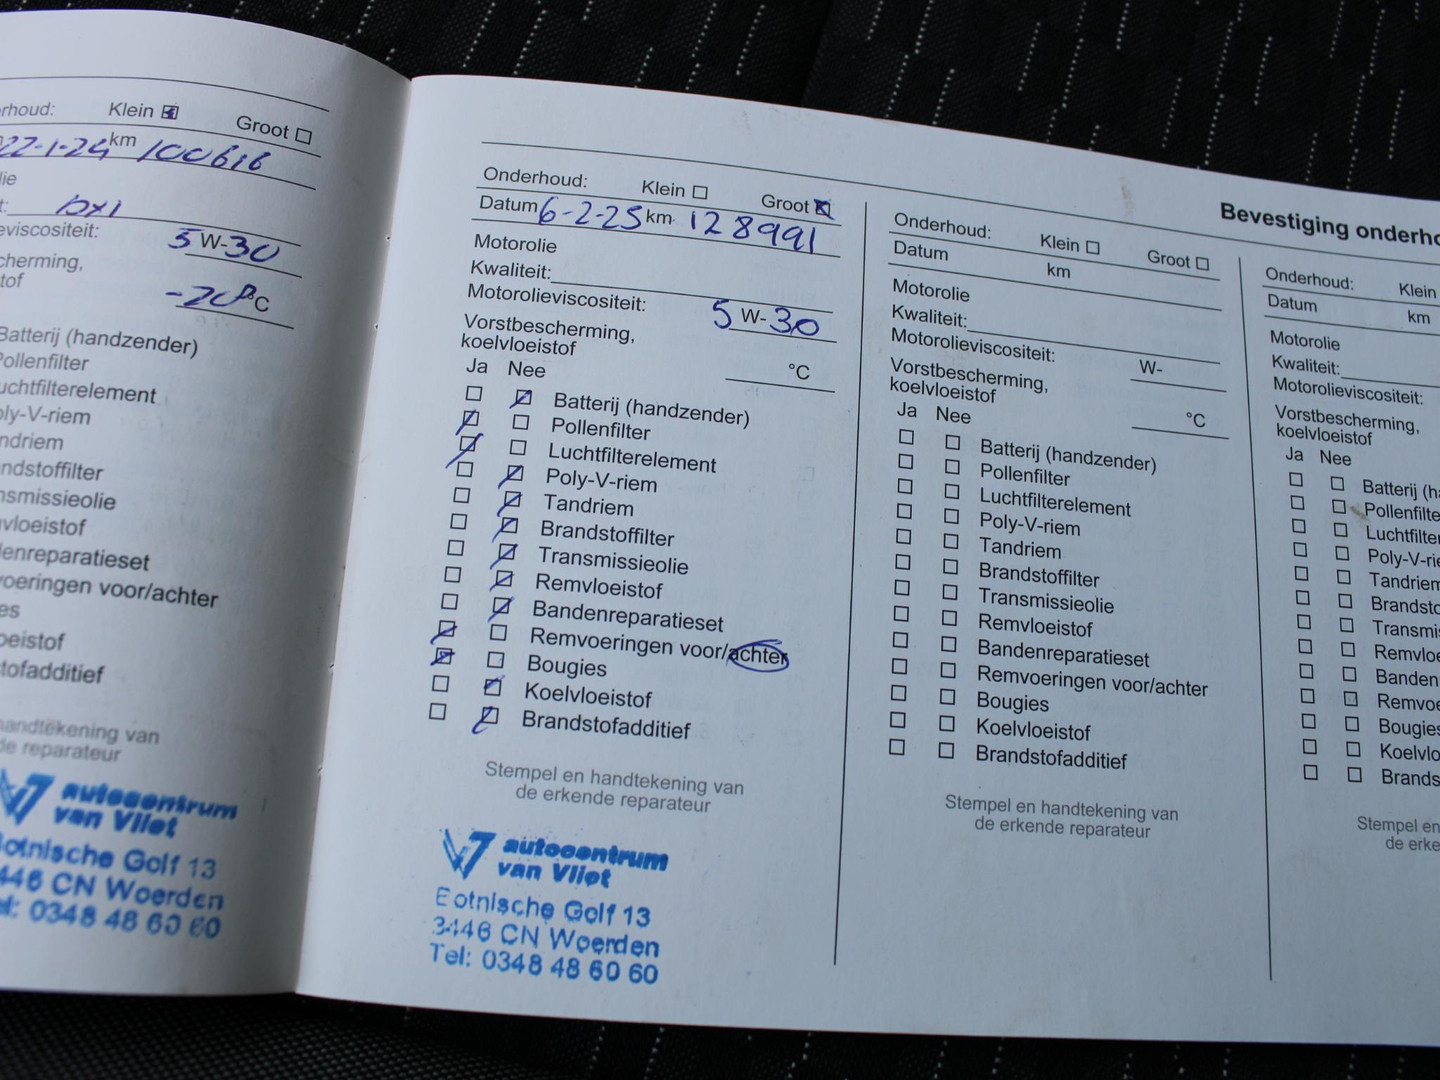 Onderhoud: Klein Groot
22-1-24 km 100616
5 W-30
-20 °C
Batterij (handzender)
Pollenfilter
uchtfilterelement
oly-V-riem
ndriem
ndstoffilter
nsmissieolie
vloeistof
denreparatieset
voeringen voor/achter
es
oeistof
stofadditief
handtekening van
de reparateur
autocentrum
van Vliet
Botnische Golf 13
446 CN Woerden
el: 0348 48 60 60
Bevestiging onderho
Onderhoud: Klein Groot
Datum 6-2-25 km 128991
Motorolie
Kwaliteit:
Motorolieviscositeit: 5 W-30
Vorstbescherming,
koelvloeistof °C
Ja Nee
Batterij (handzender)
Pollenfilter
Luchtfilterelement
Poly-V-riem
Tandriem
Brandstoffilter
Transmissieolie
Remvloeistof
Bandenreparatieset
Remvoeringen voor/achter
Bougies
Koelvloeistof
Brandstofadditief
Stempel en handtekening van
de erkende reparateur
autocentrum
van Vliet
Botnische Golf 13
3446 CN Woerden
Tel: 0348 48 60 60
Onderhoud: Klein Groot
Datum km
Motorolie
Kwaliteit:
Motorolieviscositeit: W-
Vorstbescherming,
koelvloeistof °C
Ja Nee
Batterij (handzender)
Pollenfilter
Luchtfilterelement
Poly-V-riem
Tandriem
Brandstoffilter
Transmissieolie
Remvloeistof
Bandenreparatieset
Remvoeringen voor/achter
Bougies
Koelvloeistof
Brandstofadditief
Stempel en handtekening van
de erkende reparateur
Onderhoud: Klein
Datum km
Motorolie
Kwaliteit:
Motorolieviscositeit:
Vorstbescherming,
koelvloeistof
Ja Nee
Batterij (ha
Pollenfilte
Luchtfilter
Poly-V-rie
Tandriem
Brandsto
Transmis
Remvloe
Banden
Remvoe
Bougies
Koelvlo
Brands
Stempel en
de erke